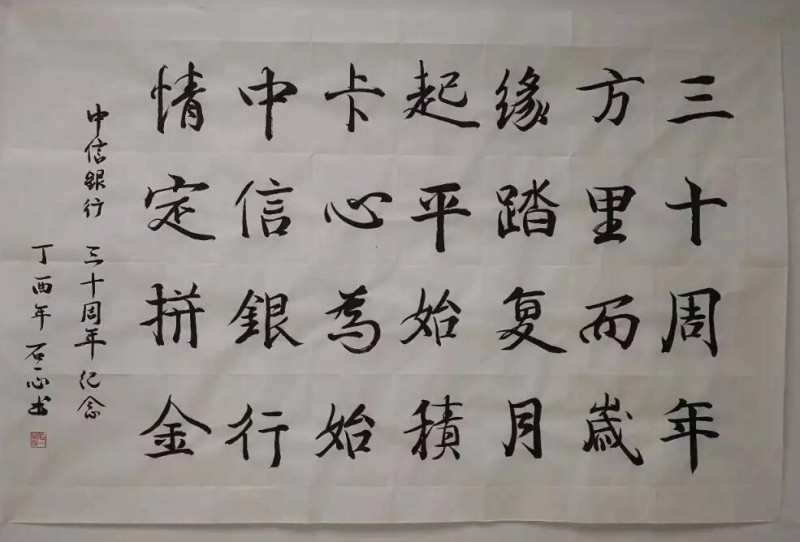 三十周年
方里而歲
缘踏复月
起平始積
卡心為始
中信銀行
情定拼金
中信银行 三十周年纪念
丁酉年 石一心书